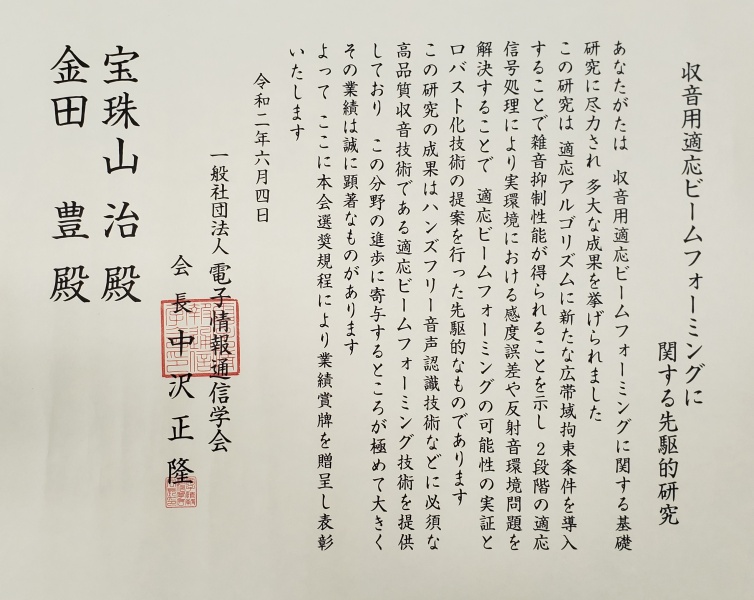 収音用適応ビームフォーミングに
関する先駆的研究
あなたがたは 収音用適応ビームフォーミングに関する基礎
研究に尽力され 多大な成果を挙げられました
この研究は 適応アルゴリズムに新たな広帯域拘束条件を導入
することで雑音抑制性能が得られることを示し 2段階の適応
信号処理により実環境における感度誤差や反射音環境問題を
解決することで 適応ビームフォーミングの可能性の実証と
ロバスト化技術の提案を行った先駆的なものであります
この研究の成果はハンズフリー音声認識技術などに必須な
高品質収音技術である適応ビームフォーミング技術を提供
しており この分野の進歩に寄与するところが極めて大きく
その業績は誠に顕著なものがあります
よって ここに本会選奨規程により業績賞牌を贈呈し表彰
いたします
令和二年六月四日
一般社団法人 電子情報通信学会
会長 中沢正隆
宝珠山 治 殿
金田 豊 殿